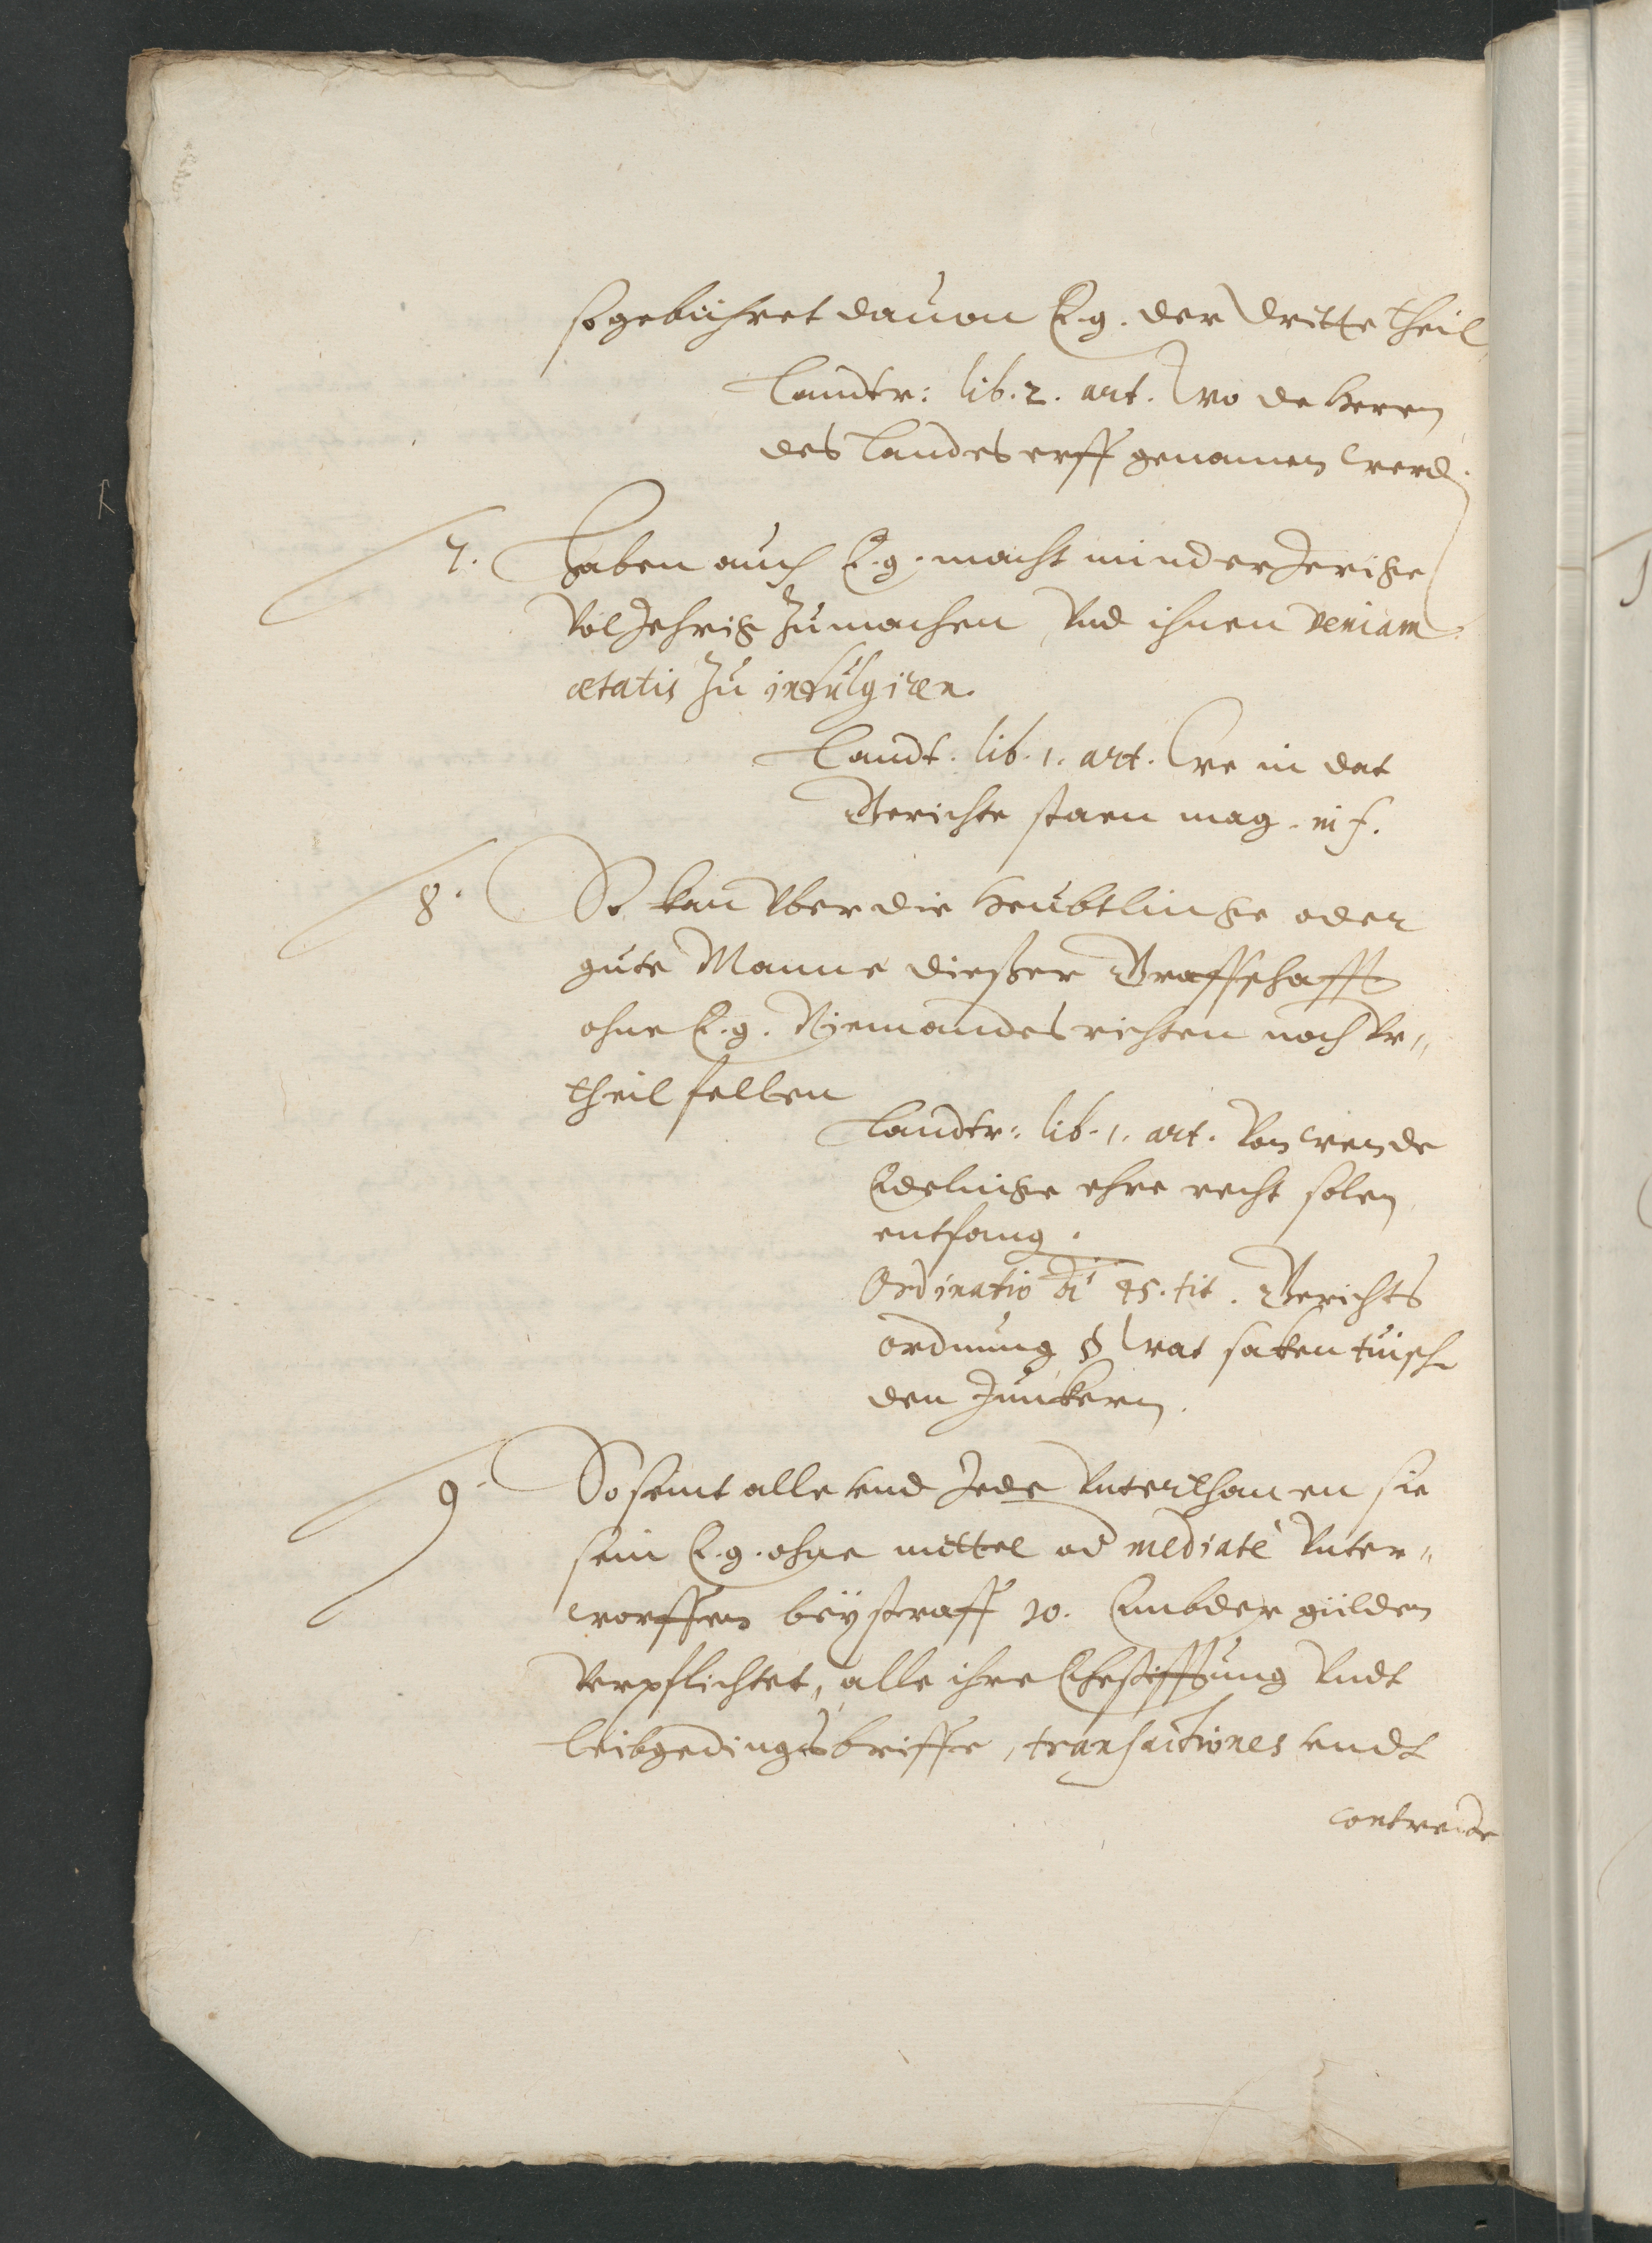 so gebühret dauon E. g. der dritte theil,
Landtr: lib. 2. art. Wo de Heren
des Landes erff genamen werd.
7. Haben auch E. g. macht minderJerige
VolJehrig zumachen Vnd ihnen veniam
ætatis zu indulgiren.
Landt. lib. 1. art. We in dat
Gerichte staen mag. in f.
8. So kan Vber die Heubtlinge oder
gute Manne dießer Graffschafft
ohne E. g. Niemandes richten noch Vr„
theil fellen
Landtr: lib. 1. art. Von wen de
Edelinge ehre recht solen
entfang.
Ordinatio 45. tit. Gerichts
ordnung § Wat saken tüisch
den Junkern.
9. So seint alle vnd Jede Vnterthanen sie
sein E. g. ohne mittel od mediatè Vnter„
worffen bey straff 10. Embder gülden
Verpflichtet, alle ihre Ehestifftung Vndt
leibgedings brieffe, transactiones vndt